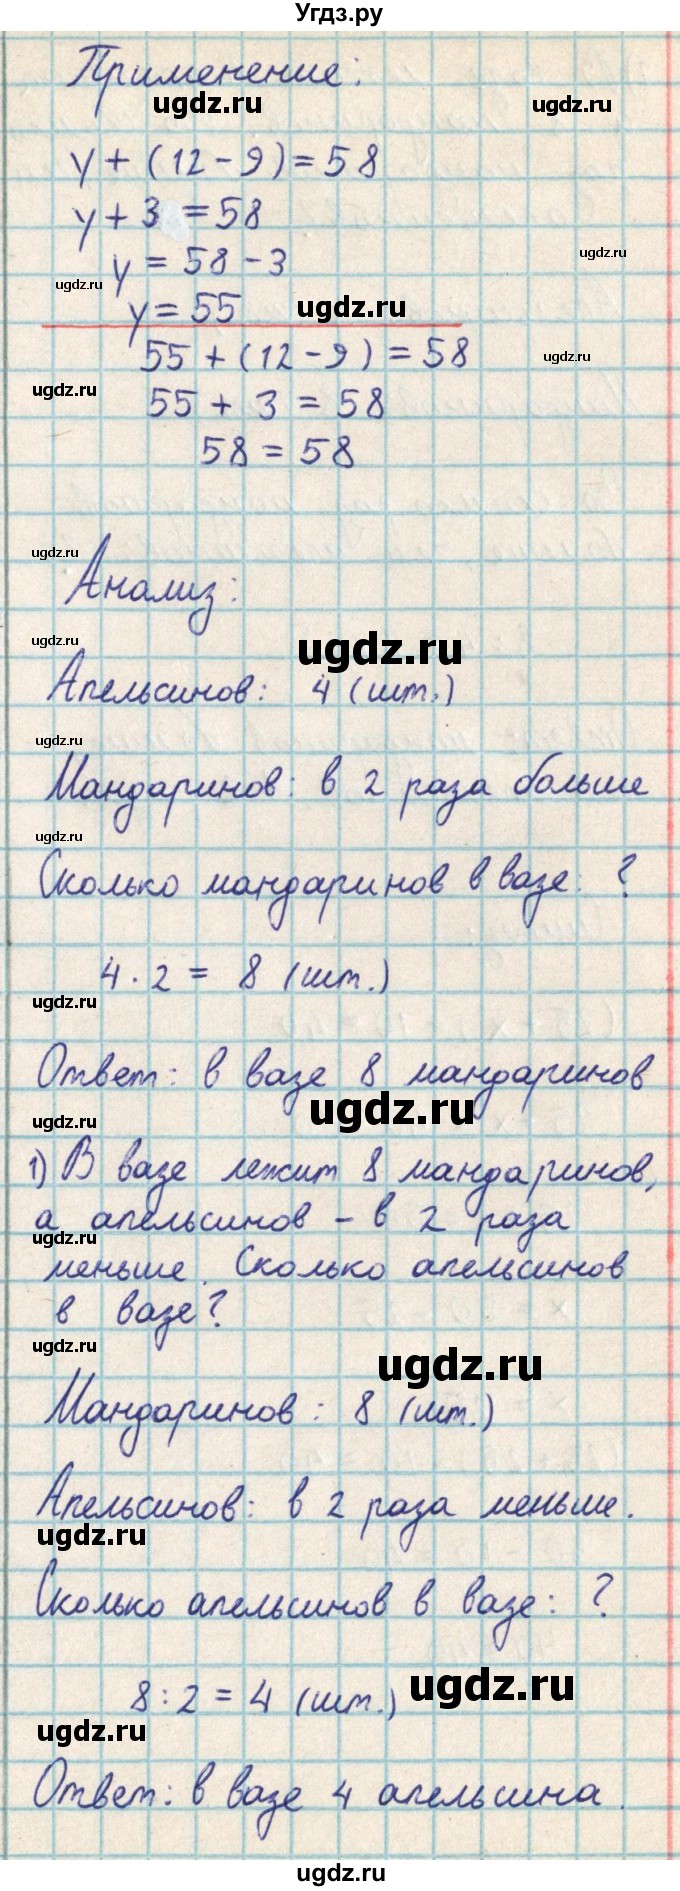 Угдз.ру
Применение:
ugdz.ru ugdz.ru
y + (12 - 9) = 58
y + 3 = 58
ugdz.ru
y = 58 - 3
ugdz.ru
y = 55
ugdz.ru
55 + (12 - 9) = 58
ugdz.ru
ugdz.ru
55 + 3 = 58
58 = 58
ugdz.ru
Анализ:
ugdz.ru
ugdz.ru
Апельсинов: 4 (шт.)
ugdz.ru
Мандаринов: в 2 раза больше
ugdz.ru
Сколько мандаринов в вазе: ?
4 · 2 = 8 (шт.)
ugdz.ru
Ответ: в вазе 8 мандаринов
ugdz.ru
ugdz.ru
1) В вазе лежит 8 мандаринов,
а апельсинов - в 2 раза
ugdz.ru
меньше. Сколько апельсинов
в вазе?
ugdz.ru
ugdz.ru
Мандаринов: 8 (шт.)
Апельсинов: в 2 раза меньше.
ugdz.ru
Сколько апельсинов в вазе: ?
8 : 2 = 4 (шт.)
ugdz.ru
ugdz.ru
Ответ: в вазе 4 апельсина.
ugdz.ru